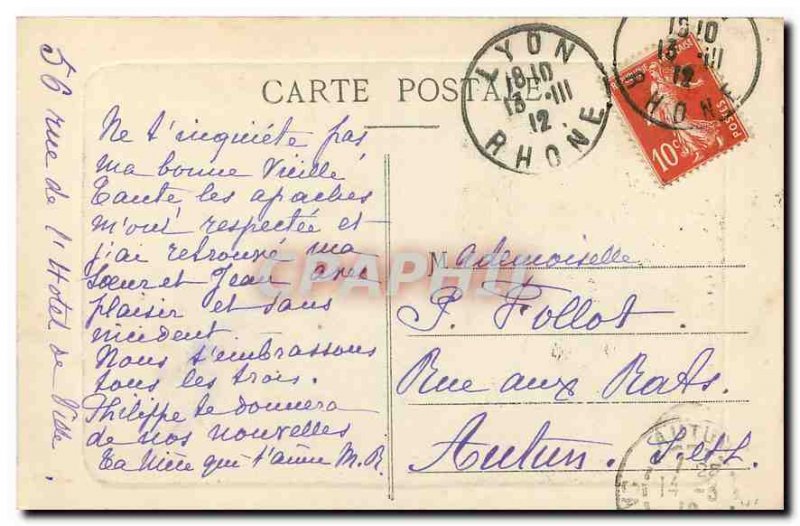 56 rue de l'Hotel de Ville.
CARTE POSTALE
LYON
1910
13 - III
12
RHONE
1910
13 - III
12
RHONE
10c
POSTES
Ne t'inquiéte pas
ma bonne Vieille
Tante les apaches
m'ont respectée et
j'ai retrouvé ma
Sœur et Jean avec
plaisir et sans
incident
Nous t'embrassons
tous les trois.
Philippe te donnera
de nos nouvelles
ta Nièce qui t'aime M.R.
Mademoiselle
P. Follot.
Rue aux Rats.
Autun. S. et L.
AUTUN
14 - 3
12
CPAPHIL